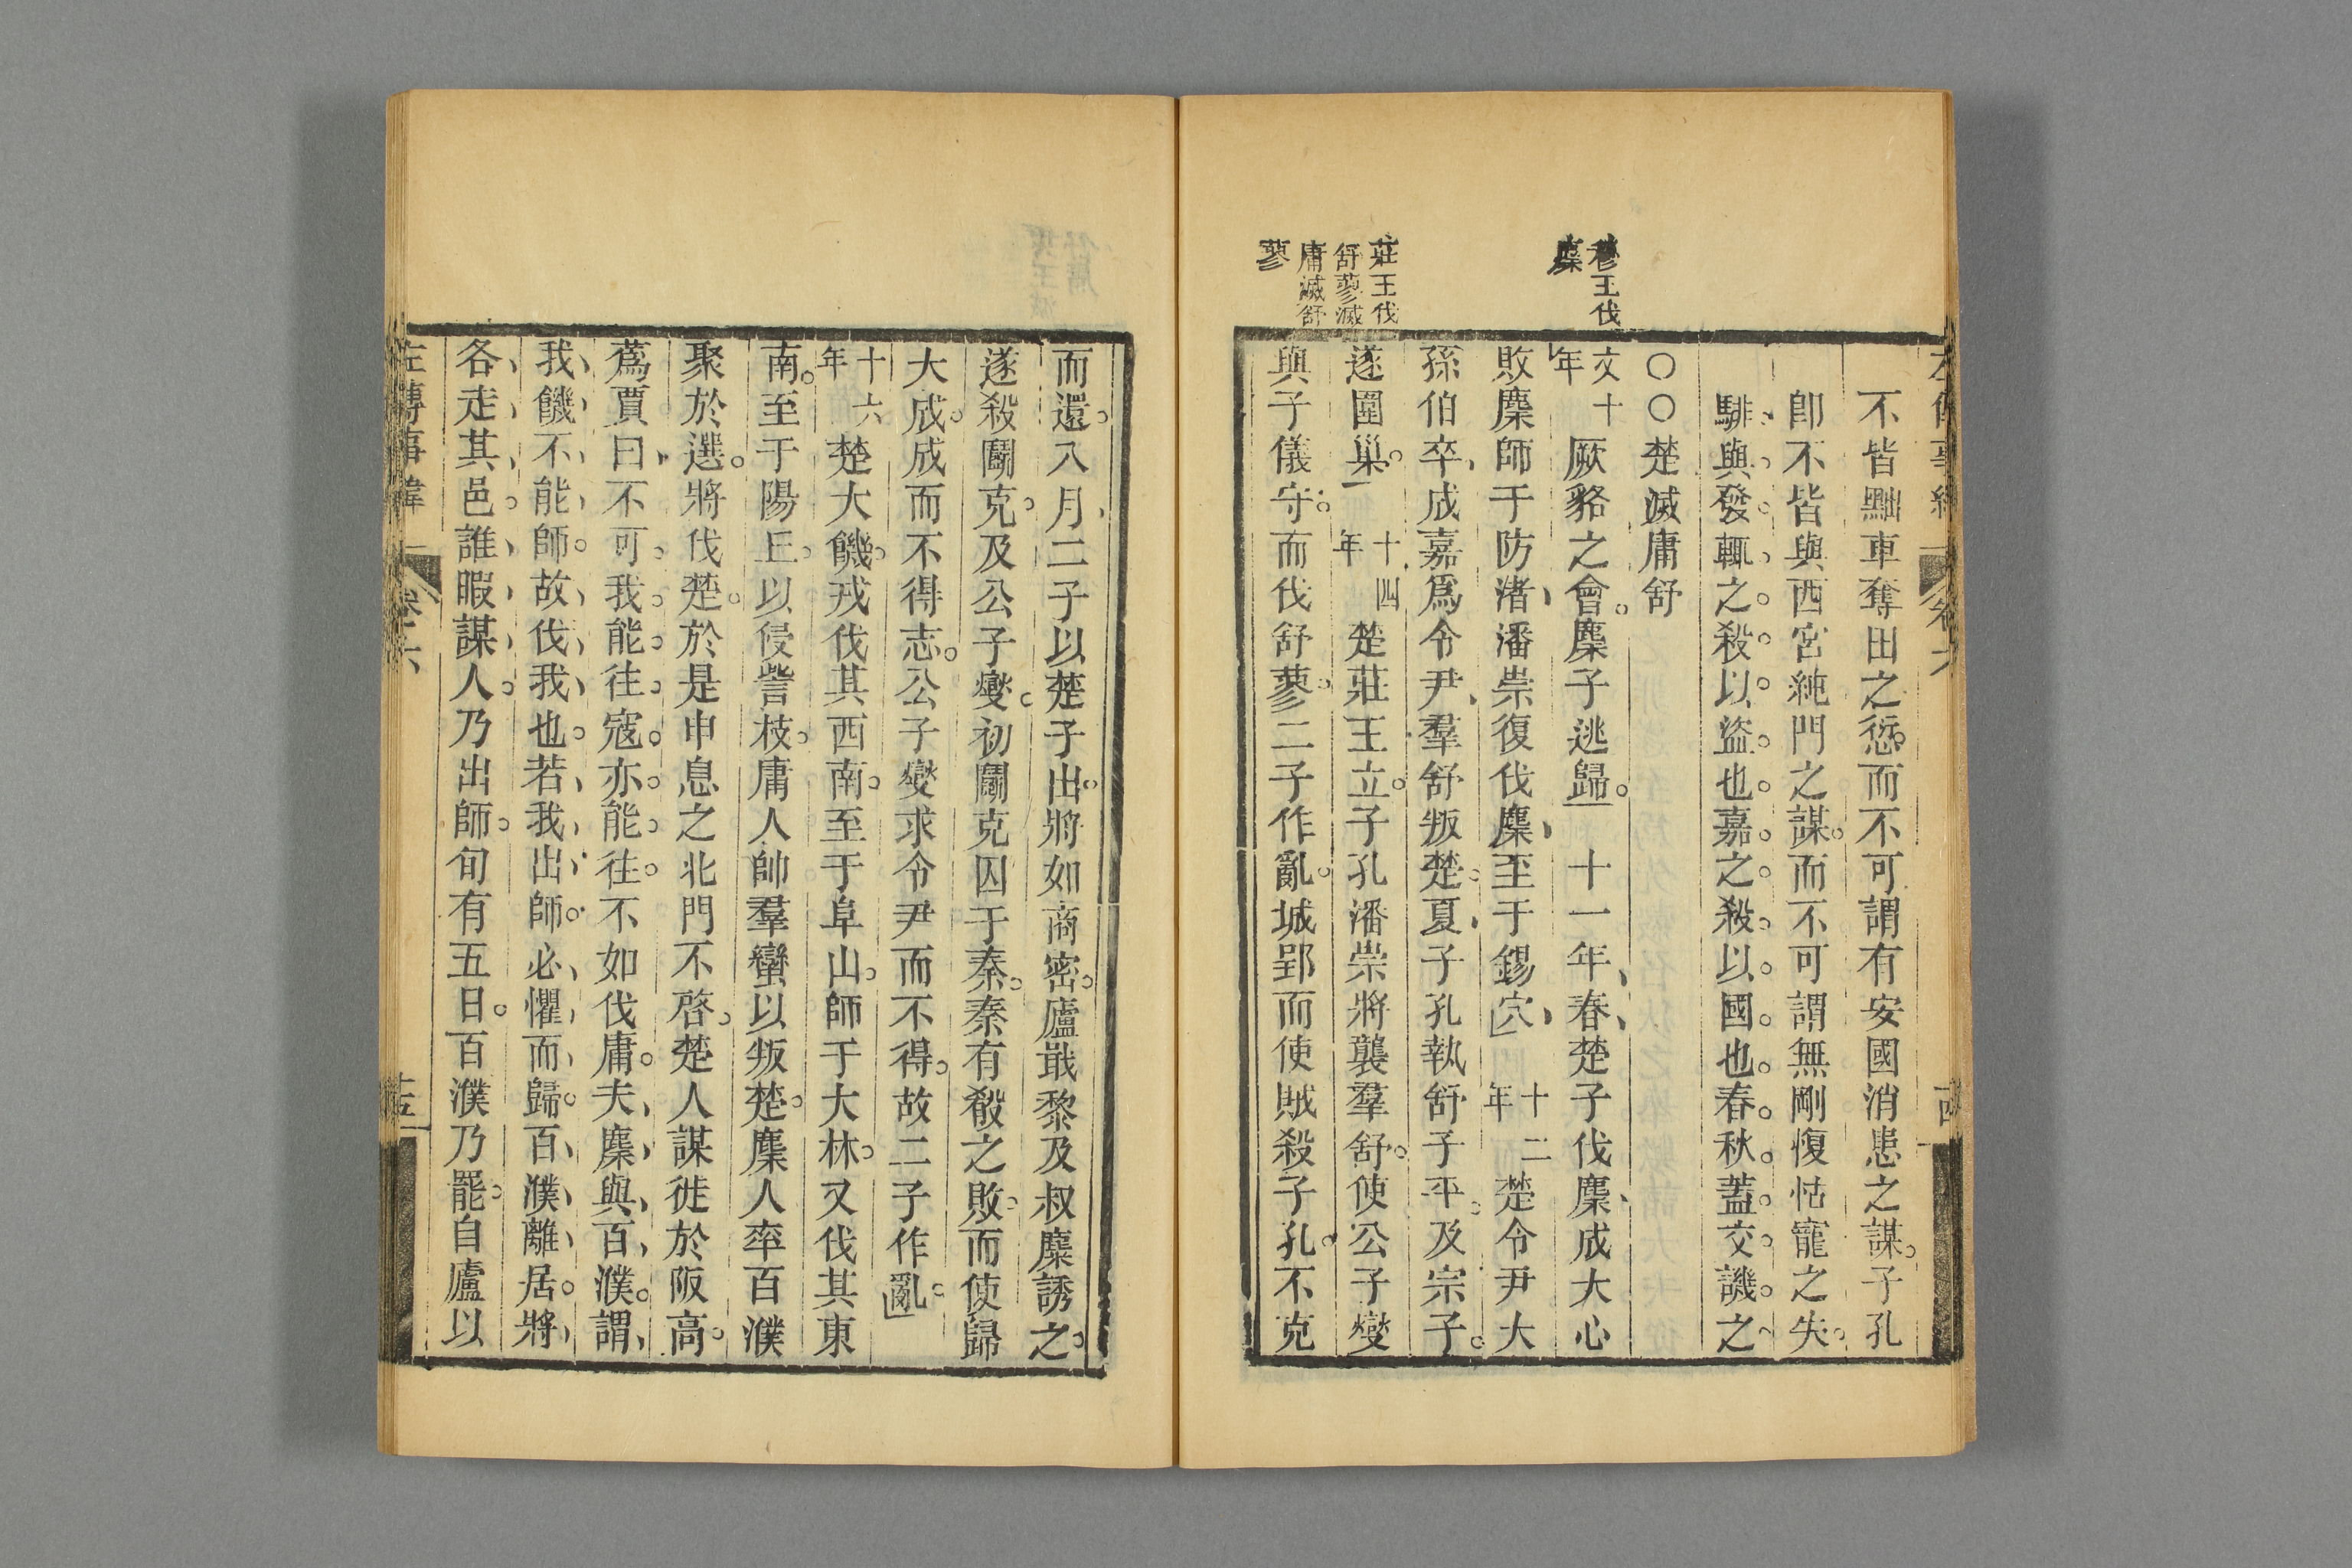 不皆黜車奪田之愆而不可謂有安國消患之謀子孔
卽不皆與西宮純門之謀而不可謂無剛愎怙寵之失
騑與發輒之殺以盜也嘉之殺以國也春秋蓋交譏之
〇〇楚滅庸舒
穆王伐
麋
文十
年
厥貉之會麇子逃歸 十一年春楚子伐麇成大心
敗麇師于防渚潘崇復伐麇至于錫穴 十二
年
楚令尹大
孫伯卒成嘉爲令尹羣舒叛楚夏子孔執舒子平及宗子
莊王伐
舒蓼滅
庸滅舒
蓼
遂圍巢 十四
年
楚莊王立子孔潘崇將襲羣舒使公子燮
與子儀守而伐舒蓼二子作亂城郢而使賊殺子孔不克
而還八月二子以楚子出將如商密廬戢黎及叔麋誘之
遂殺鬭克及公子燮初鬭克囚于秦秦有殽之敗而使歸
大成成而不得志公子燮求令尹而不得故二子作亂
十六
年
楚大饑戎伐其西南至于阜山師于大林又伐其東
南至于陽丘以侵訾枝庸人帥羣蠻以叛楚麇人率百濮
聚於選將伐楚於是申息之北門不啓楚人謀徙於阪高
蔿賈曰不可我能往寇亦能往不如伐庸夫麇與百濮謂
我饑不能師故伐我也若我出師必懼而歸百濮離居將
各走其邑誰暇謀人乃出師旬有五日百濮乃罷自廬以
左傳事緯 卷六 十五